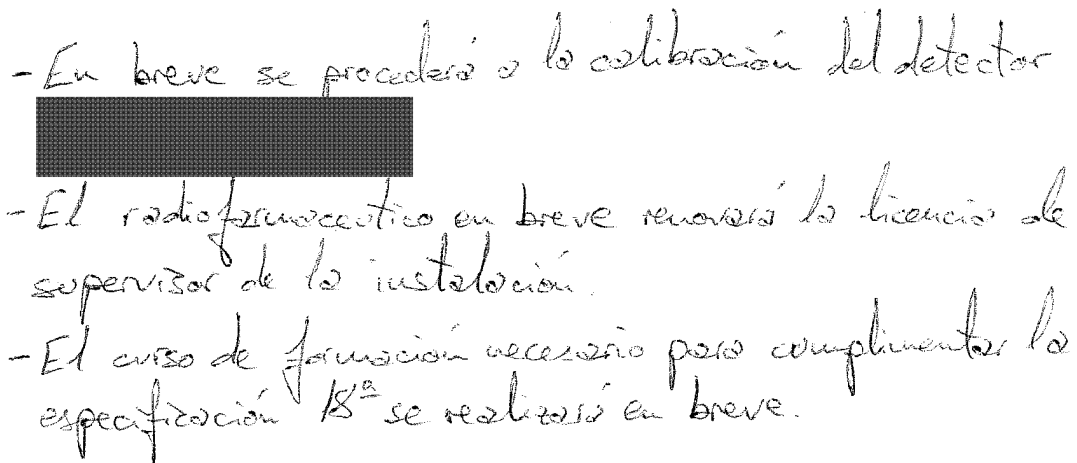 - En breve se procederá a la calibración del detector
- El radiofarmaceutico en breve renovará la licencia de
supervisor de la instalación.
- El curso de formación necesario para cumplimentar la
especificación 18ª se realizará en breve.